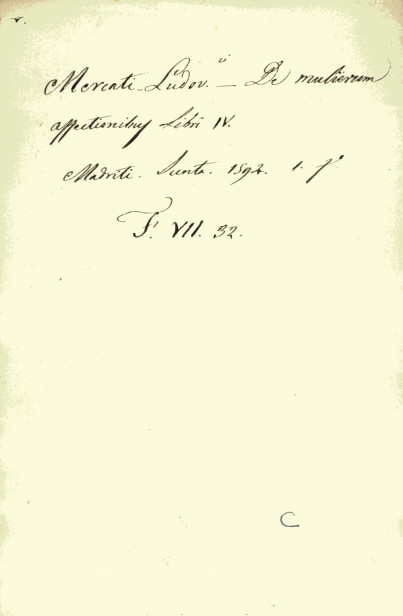 v.
Mercati Ludov.ci — De mulierum
affectionibus Libri IV.
Madriti. Iunta. 1594. 1. fo
F. VII. 32.
C